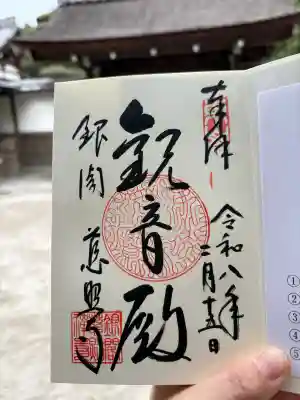 奉拝
令和八年
二月十五日
観音殿
銀閣 慈照寺
①
②
③
④
⑤